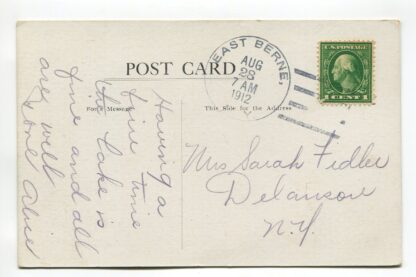 POST CARD
For Message
This Side for the Address
EAST BERNE,
AUG
28
7 AM
1912
N.Y.
U.S. POSTAGE
1 CENT 1
Having a
fine time
the lake is
fine and all
are well
love
Mrs Sarah Fidler
Delanson
N.Y.